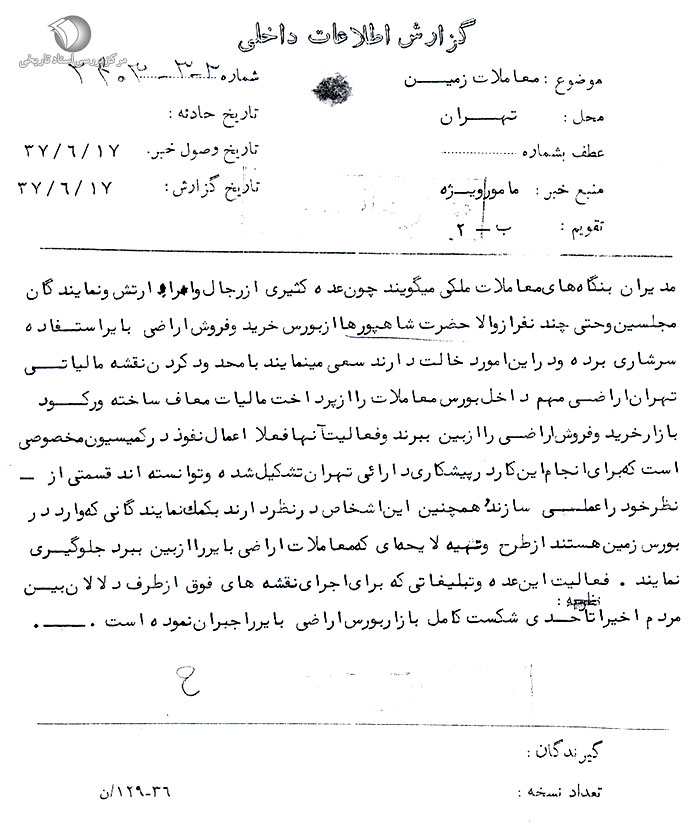 مرکز بررسی اسناد تاریخی
گزارش اطلاعات داخلی
موضوع : معاملات زمیـــن
شماره
محل : تهـــران
تاریخ حادثه :
عطف بشماره
تاریخ وصول خبر. ۳۷/۶/۱۷
منبع خبر : مامورویـژه
تاریخ گزارش : ۳۷/۶/۱۷
تقویم : ب - ۲
مدیران بنگاه‌های‌معاملات ملکی میگویند چون‌عده کثیری ازرجال‌وامراء ارتش ونمایندگان
مجلسین‌وحتی چند نفرازوالا حضرت شاهپورهاازبورس خرید وفروش‌اراضی بایراستفاده
سرشاری برده ودراین‌امورد خالت دارند سعی مینمایند بامحدود کردن‌نقشه مالیاتـــی
تهران‌اراضـی مهم داخل‌بورس معاملات راازپرداخت مالیات معاف ساخته ورکـــود
بازارخرید وفروش‌اراضـی راازبین ببرند وفعالیت‌آنهافعلا اعمال‌نفوذ درکمیسیون‌مخصوصی
است که‌برای‌انجام‌این‌کاردرپیشکاری‌دارائی تهران‌تشکیل‌شده وتوانسته اند قسمتی از ـ
نظرخود راعملـــی سازند همچنین این‌اشخاص درنظردارند بکمك‌نمایندگانی که‌وارد در
بورس زمین‌هستند ازطرح وتهیه لایحه‌ای که‌معاملات‌اراضی بایرراازبین ببرد جلوگیری
نمایند . فعالیت این‌عده وتبلیغاتی که برای‌اجرای‌نقشه های فوق ازطرف دلالان‌بیـن
مردم اخیراتاحدی شکست کامل بازاربورس‌اراضی بایرراجبران‌نموده است . ــــ .
گیرندگان :
تعداد نسخه :
۱۲۹-۳۶/ن